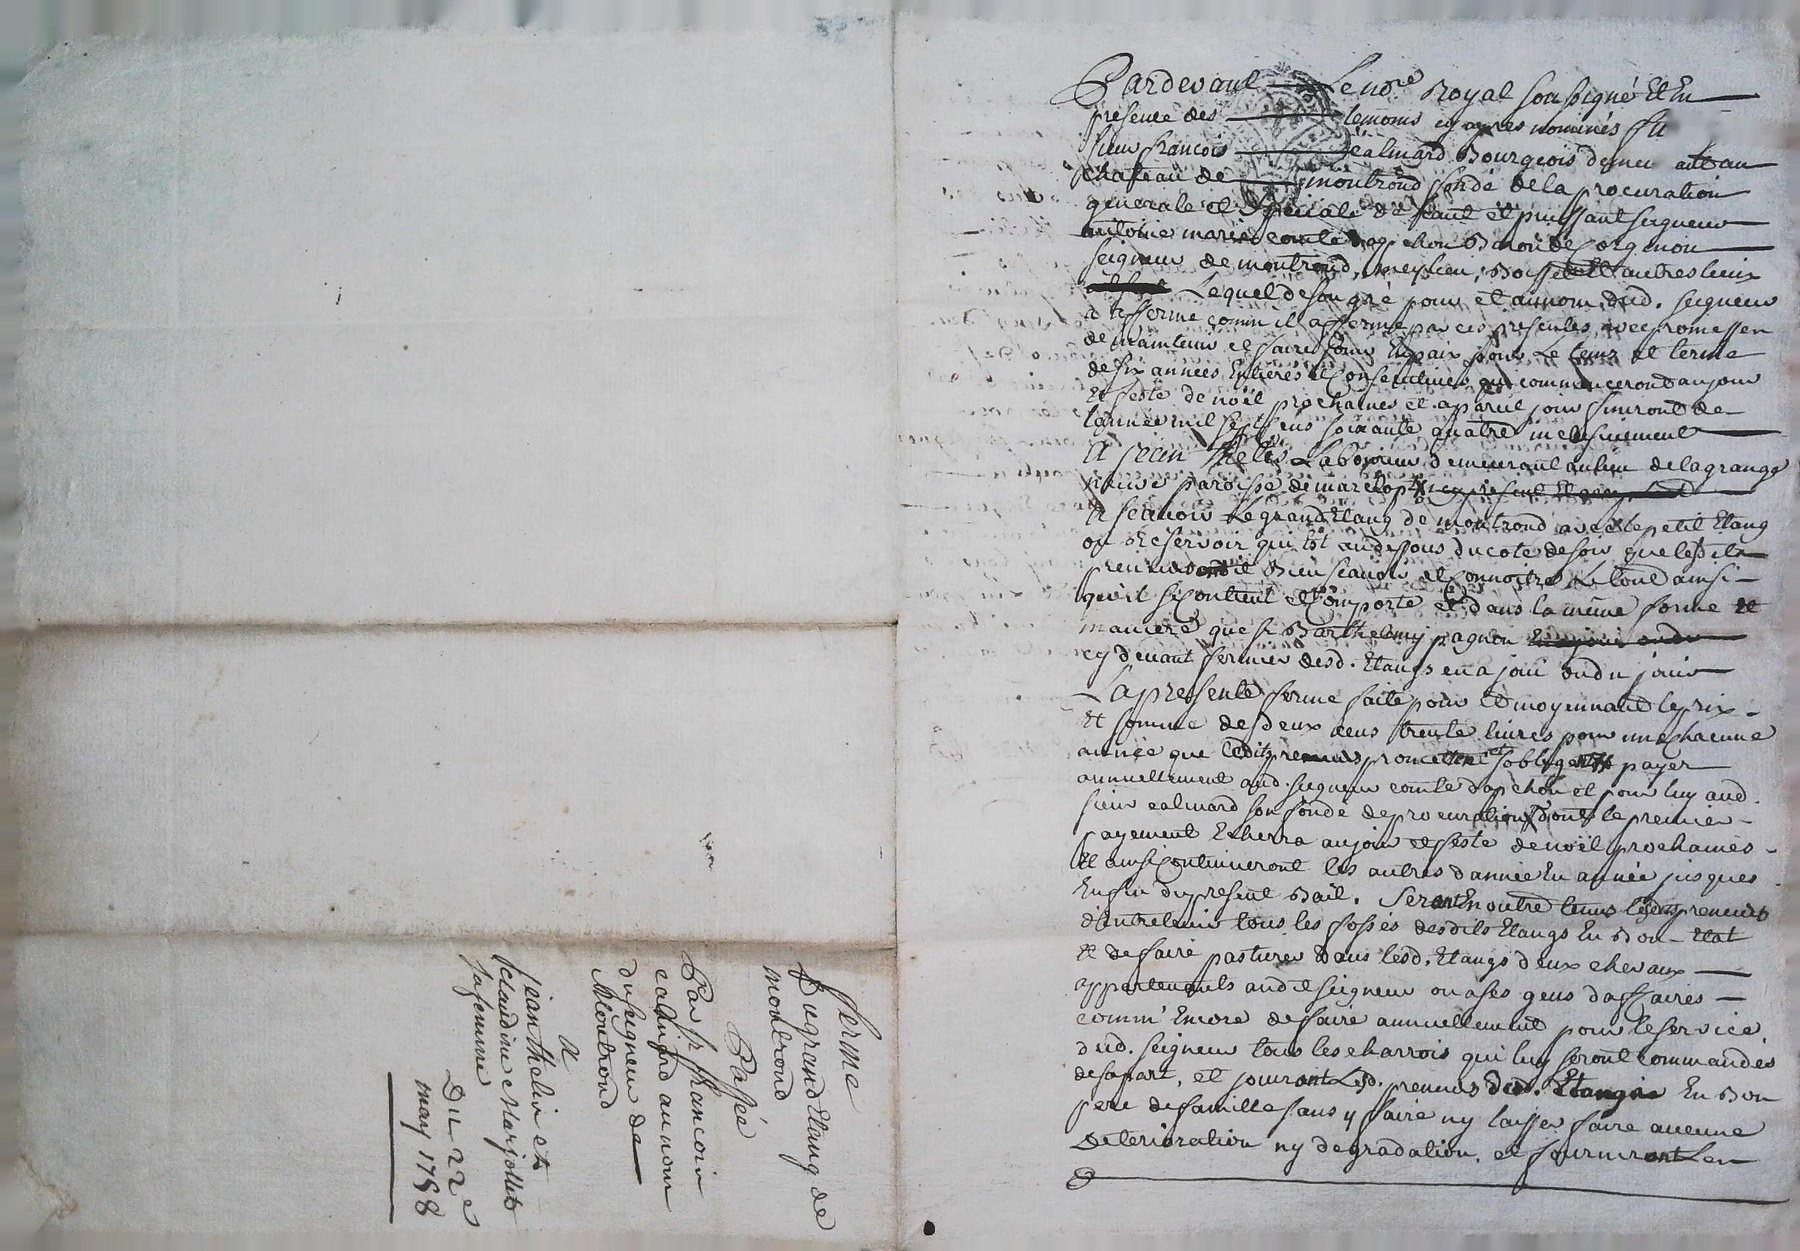 Pardevant Le no.re Royal soussigné Et En
presence des temoins cy apres nommés fut
sieur françois calmard Bourgeois demeurant au
chateau de montrond fondé de la procuration
generale et speciale de haut et puissant seigneur
antoine marie comte dapchon Baron de Corgenon
seigneur de montrond, meylieu, Boisset et autres lieux
Lequel de son gré pour et au nom dud. seigneur
a affermé comm'il afferme par ces presentes avec promesse
de maintenir et faire jouir En paix pour Le tems et terme
de six années Entieres et Consecutives qui commenceront au jour
et feste de noël prochaines et a pareil jour finiront de
lannée mil sept cens soixante quatre inclusivement
A jean thelis Laboureur demeurant au lieu de la grange
neuve paroisse de marclopt cy present et acceptant
A scavoir Le grand Etang de montrond avec le petit Etang
ou Reservoir qui est au dessous du coté de soir que lesdits
preneurs ont dit Bien scavoir et Connoitre Le tout ainsi
qu'il se Contient et Comporte et dans la même forme et
maniere que sr Barthelemy pagnon
cy devant fermier desd. Etangs en a joui ou du jouir
La presente ferme faite pour et moyennant le prix
et somme de deux cens trente livres pour une chacune
année que lesdits preneurs promettent et sobligent payer
annuellement aud. seigneur comte dapchon et pour luy aud.
sieur calmard son fondé de procuration dont le premier
payement Echerra au jour et feste de noël prochaines
et ainsi Continueront les autres d'année En année jusques
En fin du present Bail. Seront En outre tenus lesdits preneurs
d'entretenir tous les fossés desdits Etangs En Bon Etat
et de faire pasturer dans lesd. Etangs deux chevaux
appartenants aud. seigneur ou a ses gens daffaires
comm'Encore de faire annuellement pour le service
dud. seigneur tous les charrois qui luy seront commandés
de sa part, et jouiront Lesd. preneurs desd. Etangs En Bon
pere de famille sans y faire ny laisser faire aucune
deterioration ny degradation, et fourniront Len
ferme
Du grand Etang de
montrond
Passée
Par sr francois
calmard au nom
du seigneur de
Montrond
A
jean thelis et
claudine Marjollet
sa femme
Du 22e
may 1758